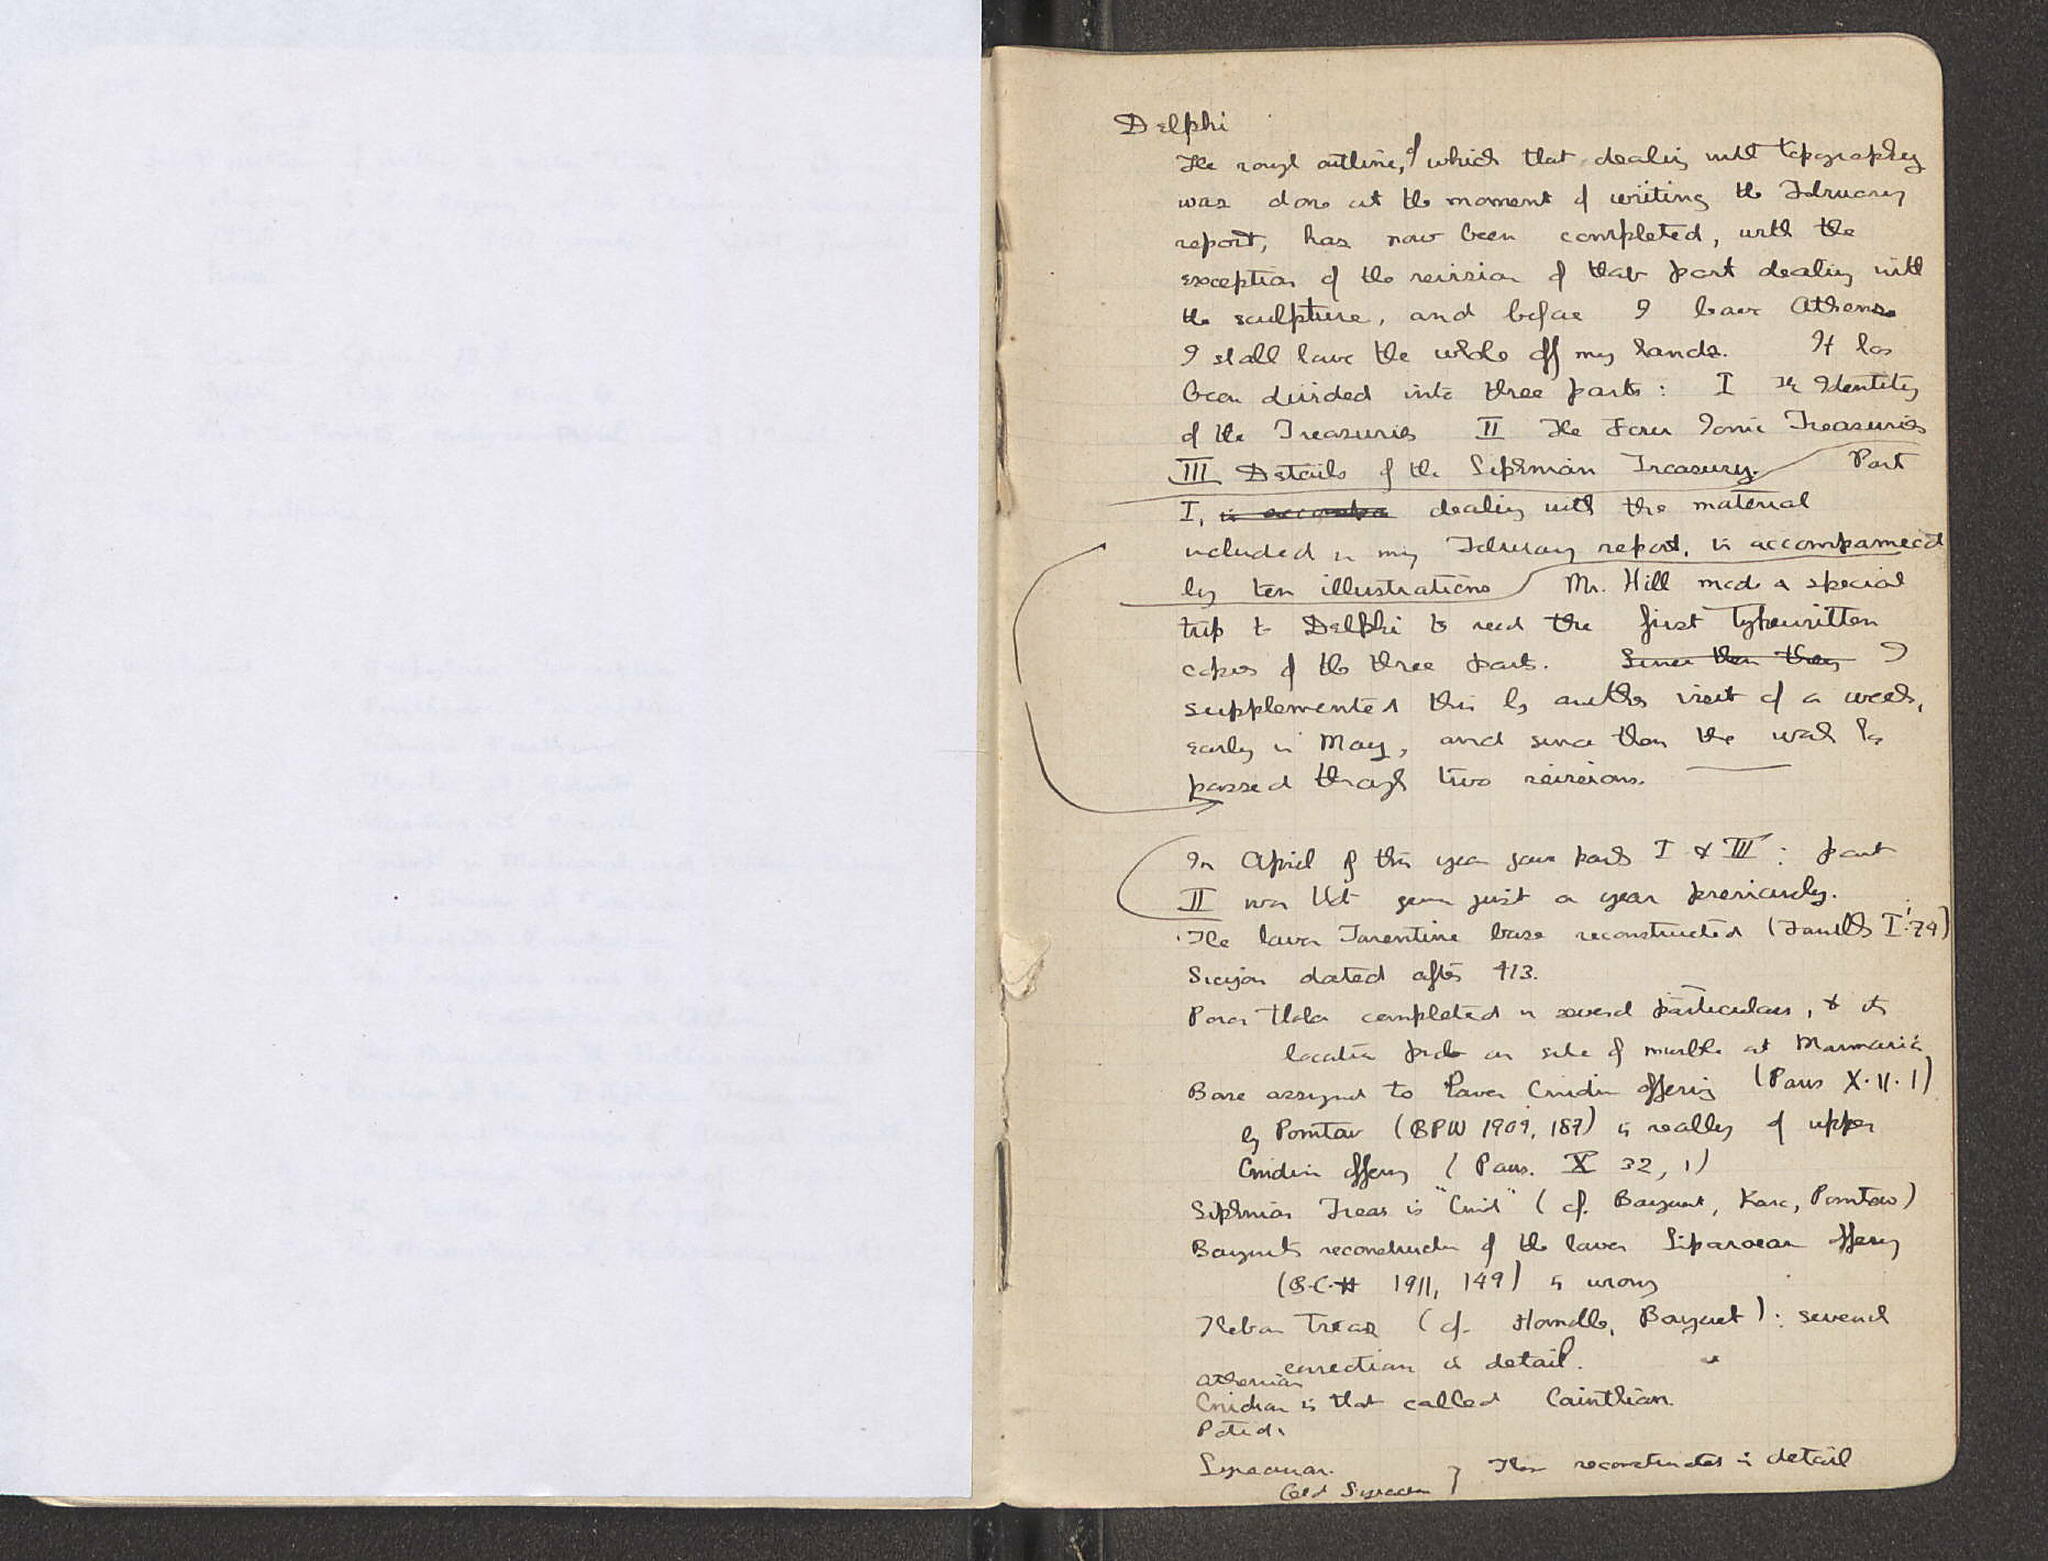 Delphi
The rough outline, of which that dealing with topography
was done at the moment of writing the February
report, has now been completed, with the
exception of the revision of that part dealing with
the sculpture, and before I leave Athens
I shall have the whole off my hands. It has
been divided into three parts: I The Identity
of the Treasuries II The Four Ionic Treasuries
III Details of the Siphnian Treasury. Part
I, dealing with the material
included in my February report, is accompanied
by ten illustrations Mr. Hill made a special
trip to Delphi to read the first typewritten
copies of the three parts. Since then they I
supplemented this by another visit of a week,
early in May, and since then the work has
passed through two revisions.
In April of this year gave parts I & III: part
II was given just a year previously.
The lower Tarentine base reconstructed
Sicyon dated after 413.
Poros tholos completed in several particulars, & its
location on site of at Marmaria
Base assigned to lower Cnidian offering (Paus X.11.1)
by Pomtow (BPW 1909, 187) is really of upper
Cnidian offering (Paus. X 32, 1)
Siphnian Treas is "Cnid" (cf. Bourguet, Karo, Pomtow)
Bourguet's reconstruction of the lower Liparaean offering
(B.C.H 1911, 149) is wrong
Theban Treas (cf. Homolle, Bourguet): several
correction in detail.
Athenian
Cnidian is that called Corinthian.
Potid.
Syracusan.
Old Syracusan } reconstructed in detail